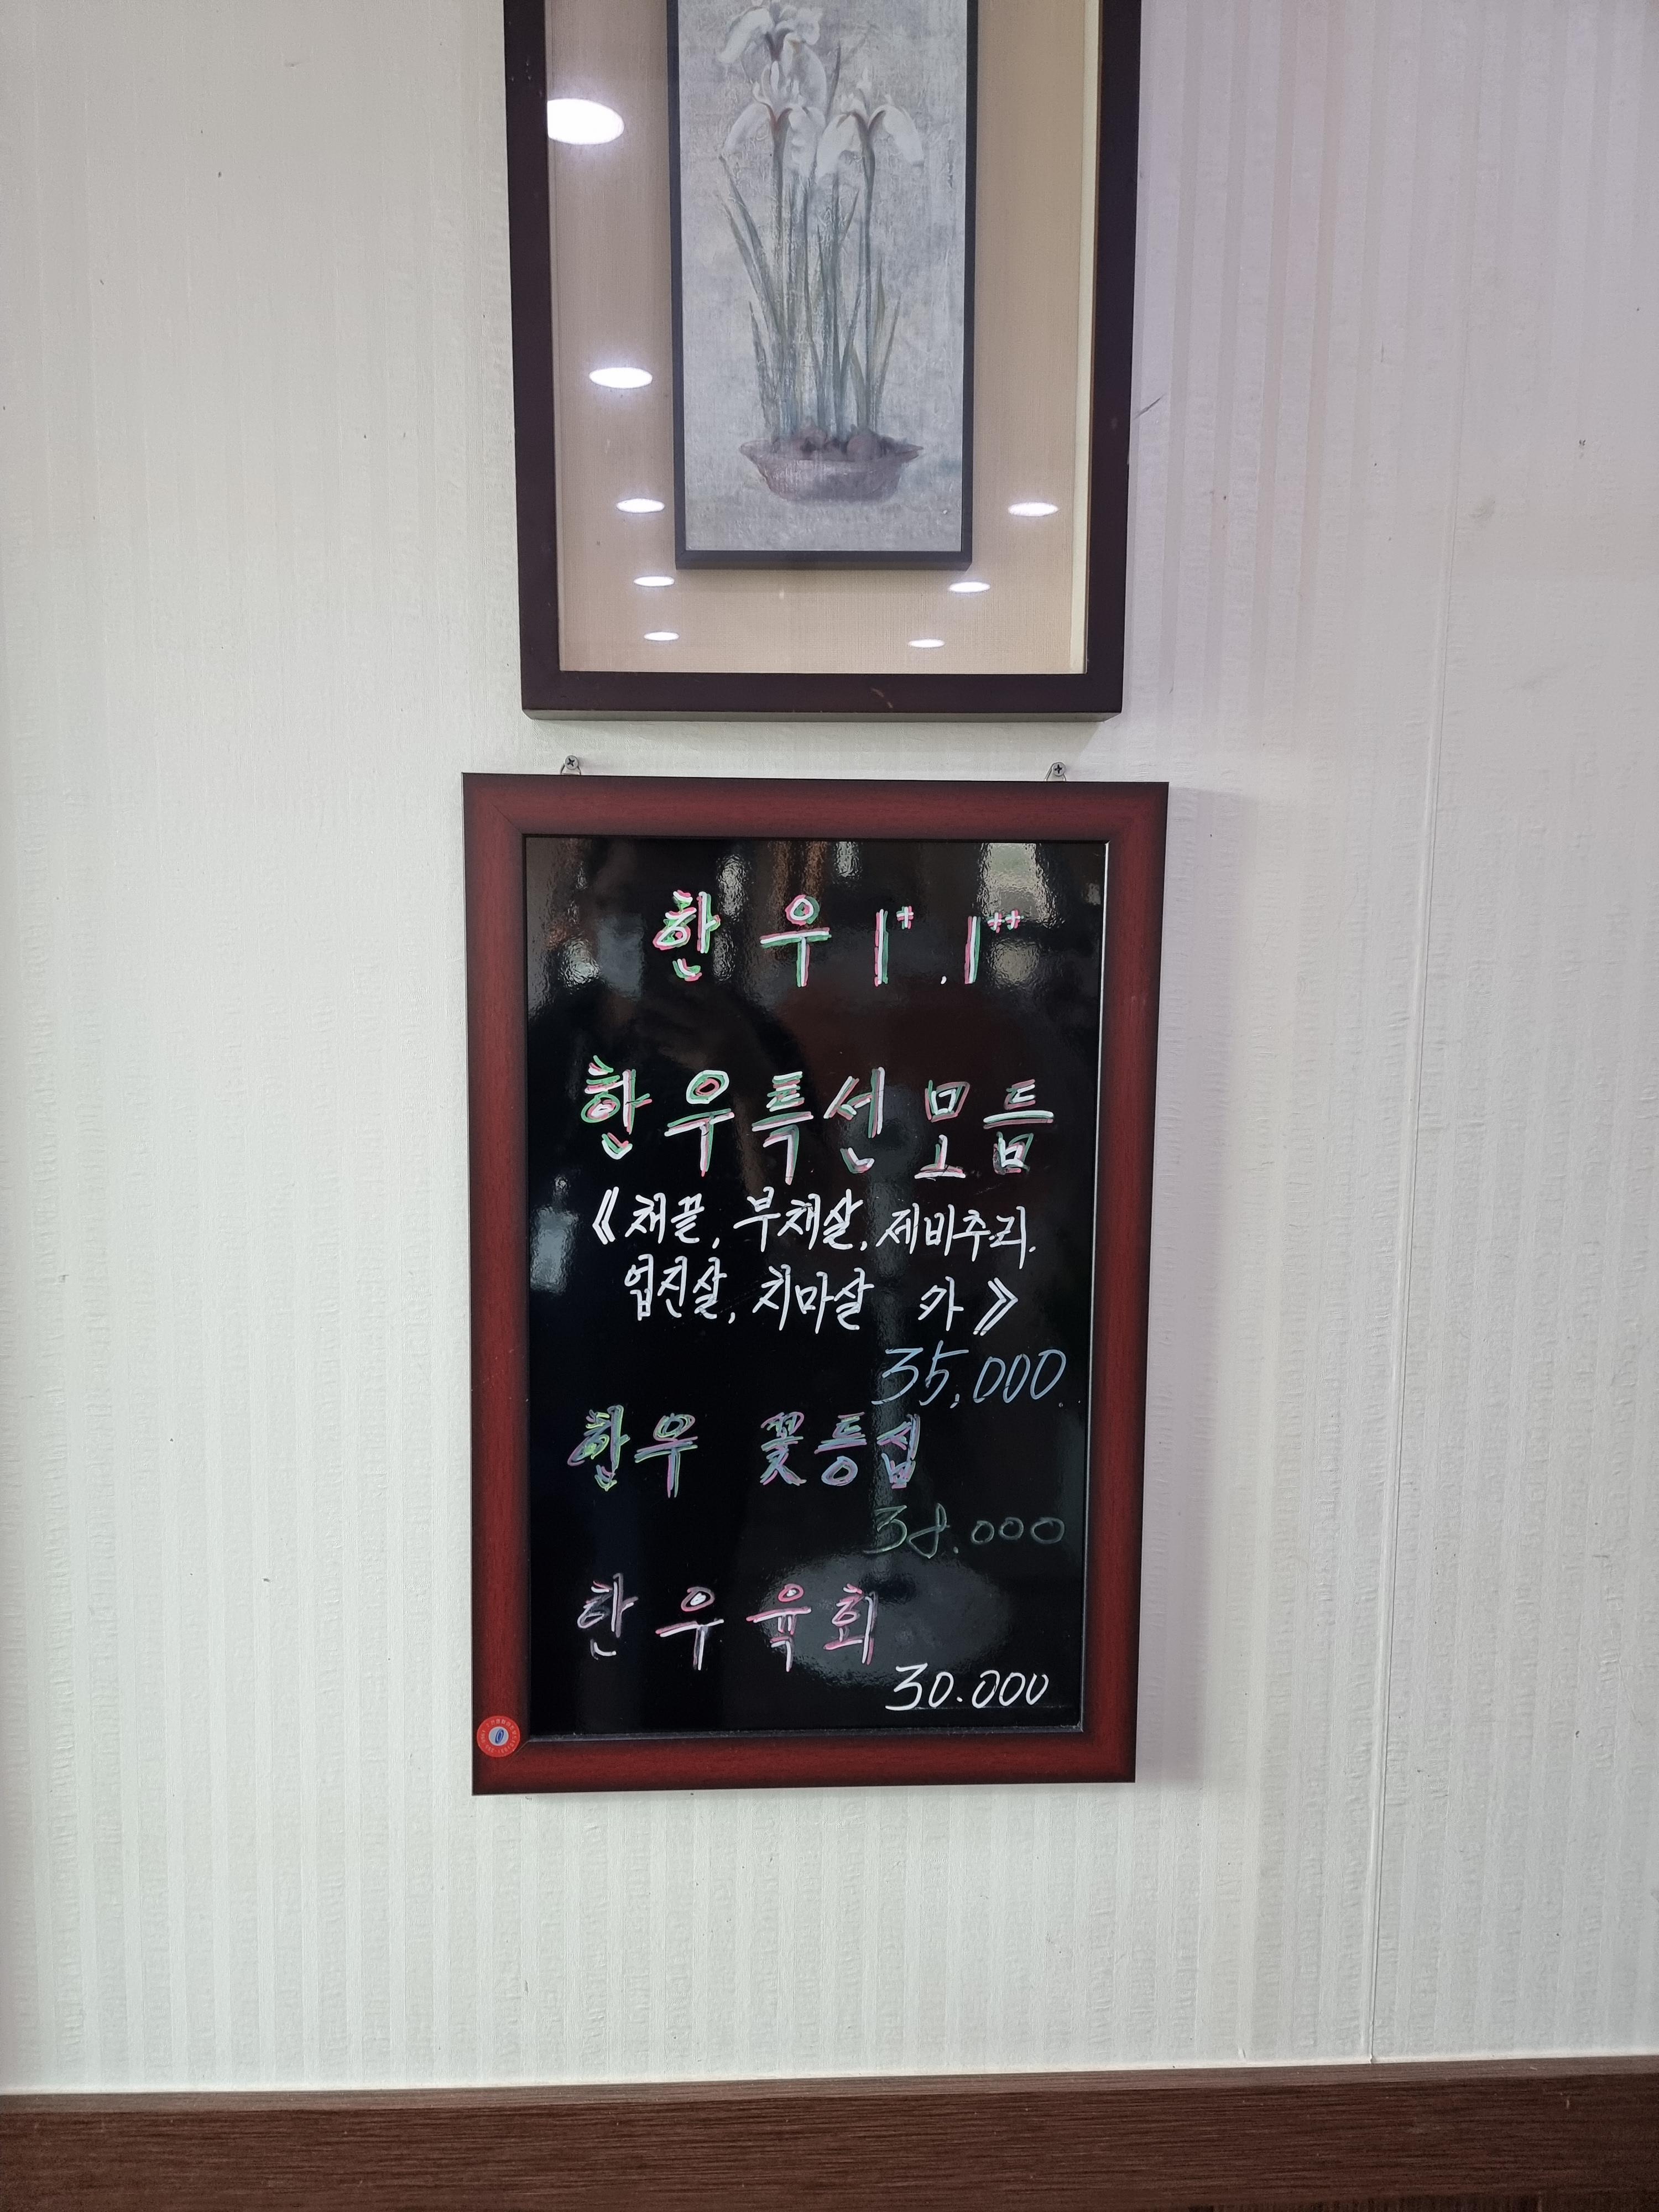 한우 1⁺. 1⁺⁺
한우특선모듬
《채끝, 부채살, 제비추리.
업진살, 치마살 外》
35,000
한우 꽃등심
38.000
한우육회
30.000